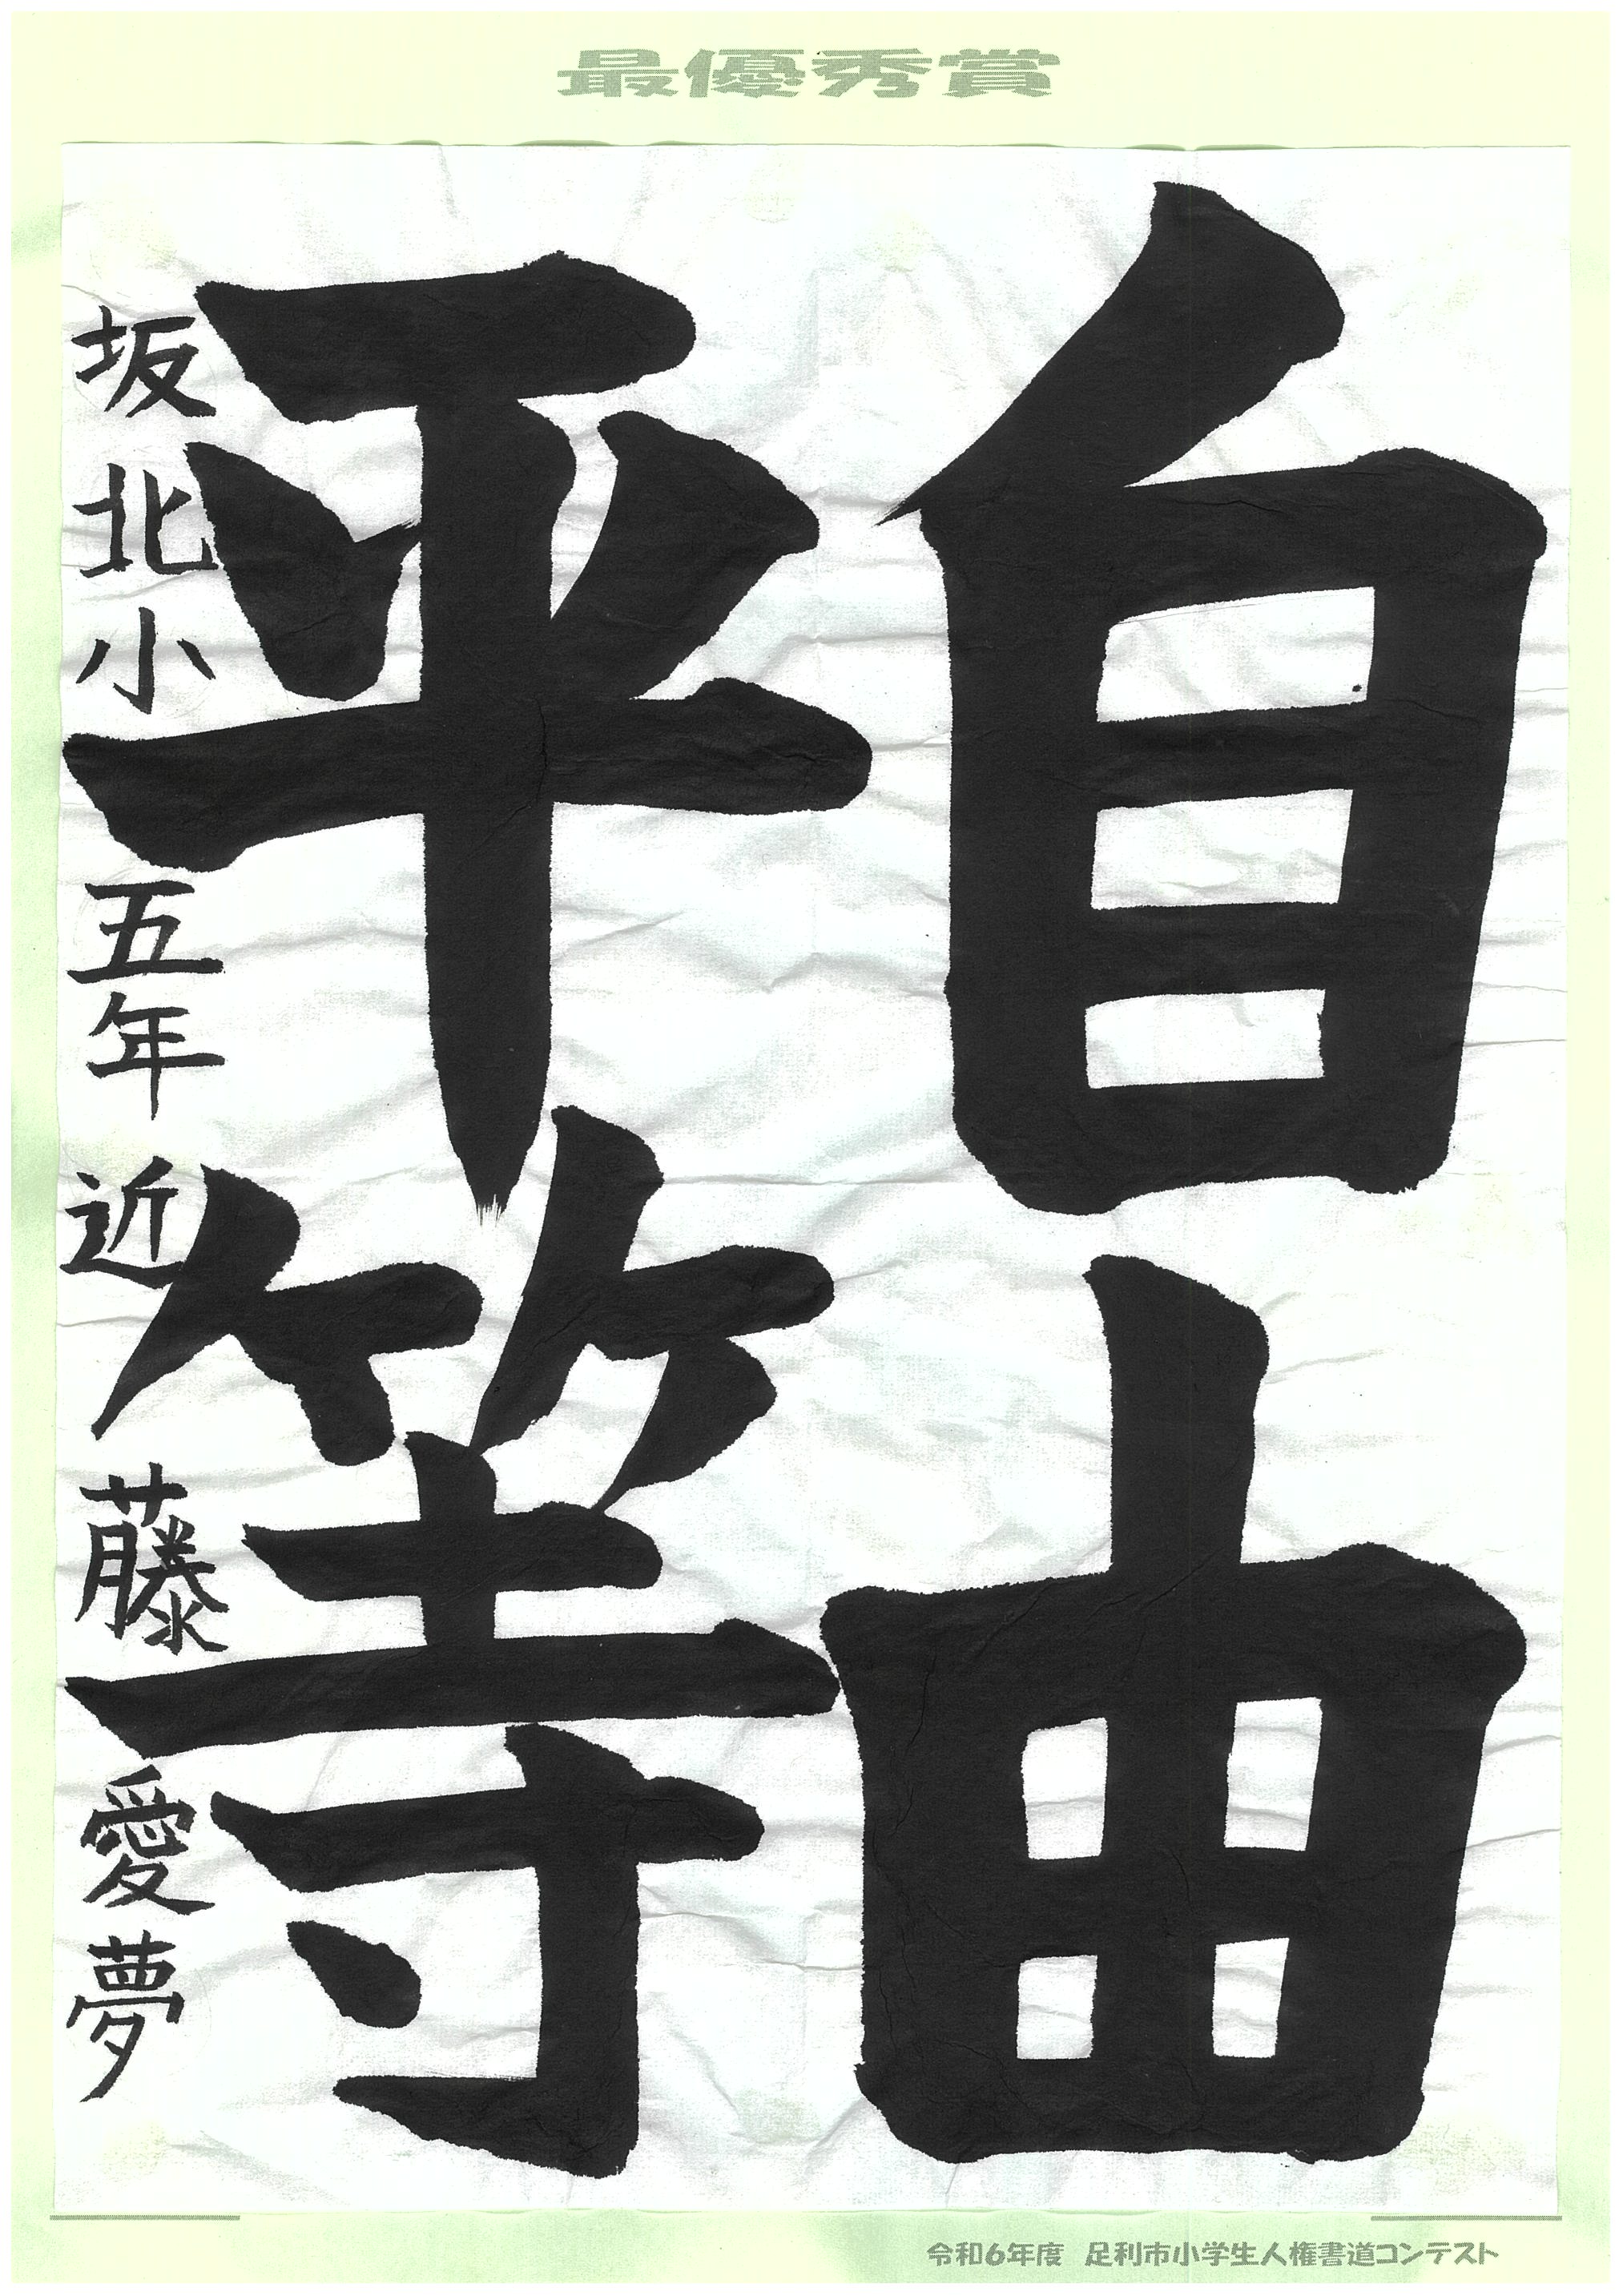 最優秀賞
自由
平等
坂北小 五年 近藤愛夢
令和6年度 足利市小学生人権書道コンテスト